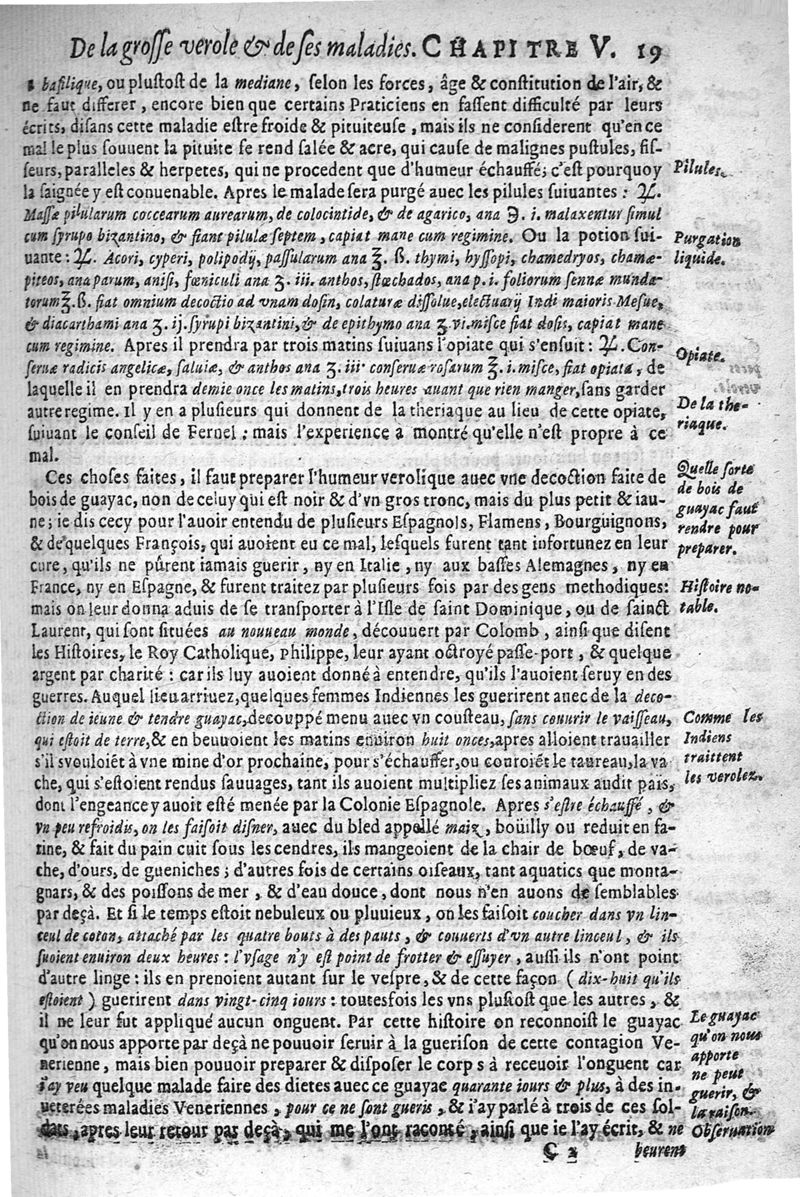 De la grosse verole & de ses maladies. CHAPITRE V. 19
basilique, ou plustost de la mediane, selon les forces, âge & constitution de l'air, &
ne faut differer, encore bien que certains Praticiens en fassent difficulté par leurs
écrits, disans cette maladie estre froide & pituiteuse, mais ils ne considerent qu'en ce
mal le plus souuent la pituite se rend salée & acre, qui cause de malignes pustules, fis-
seurs, paralleles & herpetes, qui ne procedent que d'humeur échauffé; c'est pourquoy
la saignée y est conuenable. Apres le malade sera purgé auec les pilules suiuantes: ♃.
Pilules.
Massæ pilularum coccearum aurearum, de colocintide, & de agarico, ana ℈. i. malaxentur simul
cum syrupo bizantino, & fiant pilulæ septem, capiat mane cum regimine. Ou la potion sui-
uante: ♃. Acori, cyperi, polipodij, passularum ana ʒ. ß. thymi, hyssopi, chamedryos, chamæ-
Purgation
liquide.
piteos, ana parum, anisi, fœniculi ana ʒ. iii. anthos, stœchados, ana p. i. foliorum sennæ munda-
torum ʒ. ß. fiat omnium decoctio ad vnam dosin, colaturæ dissolue, electuarij Indi maioris Mesue,
& diacarthami ana ʒ. ij. syrupi bizantini, & de epithymo ana ʒ. vi. misce fiat dosis, capiat mane
cum regimine. Apres il prendra par trois matins suiuans l'opiate qui s'ensuit: ♃. Con-
seruæ radicis angelicæ, saluiæ, & anthos ana ʒ. iii. conseruæ rosarum ʒ. i. misce, fiat opiata, de
Opiate.
laquelle il en prendra demie once les matins, trois heures auant que rien manger, sans garder
autre regime. Il y en a plusieurs qui donnent de la theriaque au lieu de cette opiate,
De la the-
riaque.
suiuant le conseil de Fernel: mais l'experience a montré qu'elle n'est propre à ce
mal.
Ces choses faites, il faut preparer l'humeur verolique auec vne decoction faite de
Quelle sorte
de bois de
guayac faut
rendre pour
preparer.
bois de guayac, non de celuy qui est noir & d'vn gros tronc, mais du plus petit & iau-
ne; ie dis cecy pour l'auoir entendu de plusieurs Espagnols, Flamens, Bourguignons,
& de quelques François, qui auoient eu ce mal, lesquels furent tant infortunez en leur
cure, qu'ils ne pûrent iamais guerir, ny en Italie, ny aux basses Alemagnes, ny en
France, ny en Espagne, & furent traitez par plusieurs fois par des gens methodiques:
Histoire no-
table.
mais on leur donna aduis de se transporter à l'Isle de saint Dominique, ou de sainct
Laurent, qui sont situées au nouueau monde, découuert par Colomb, ainsi que disent
les Histoires, le Roy Catholique, Philippe, leur ayant octroyé passe-port, & quelque
argent par charité: car ils luy auoient donné à entendre, qu'ils l'auoient seruy en des
guerres. Auquel lieu arriuez, quelques femmes Indiennes les guerirent auec de la deco-
ction de ieune & tendre guayac, découppé menu auec vn cousteau, sans couurir le vaisseau,
Comme les
Indiens
traittent
les verolez.
qui estoit de terre, & en beuuoient les matins enuiron huit onces, apres alloient trauailler
s'il s vouloiët à vne mine d'or prochaine, pour s'échauffer, ou couroiët le taureau, la va
che, qui s'estoient rendus sauuages, tant ils auoient multipliez ses animaux audit païs,
dont l'engeance y auoit esté menée par la Colonie Espagnole. Apres s'estre échauffé, &
vn peu refroidis, on les faisoit disner, auec du bled appellé maiz, boüilly ou reduit en fa-
rine, & fait du pain cuit sous les cendres, ils mangeoient de la chair de bœuf, de va-
che, d'ours, de gueniches; d'autres fois de certains oiseaux, tant aquatics que monta-
gnars, & des poissons de mer, & d'eau douce, dont nous n'en auons de semblables
par deçà. Et si le temps estoit nebuleux ou pluuieux, on les faisoit coucher dans vn lin-
ceul de coton, attaché par les quatre bouts à des pauts, & couuerts d'vn autre linceul, & ils
suoient enuiron deux heures: l'vsage n'y est point de frotter & essuyer, aussi ils n'ont point
d'autre linge: ils en prenoient autant sur le vespre, & de cette façon (dix-huit qu'ils
estoient) guerirent dans vingt-cinq iours: toutesfois les vns plustost que les autres, &
il ne leur fut appliqué aucun onguent. Par cette histoire on reconnoist le guayac
Le guayac
qu'on nous
apporte
ne peut
guerir, &
la raison.
qu'on nous apporte par deçà ne pouuoir seruir à la guerison de cette contagion Ve-
nerienne, mais bien pouuoir preparer & disposer le corps à receuoir l'onguent car
i'ay veu quelque malade faire des dietes auec ce guayac quarante iours & plus, à des in-
ueterées maladies Veneriennes, pour ce ne sont gueris, & i'ay parlé à trois de ces sol-
dats, apres leur retour par deçà, qui me l'ont raconté, ainsi que ie l'ay écrit, & ne
Obseruation
C 2 beurent